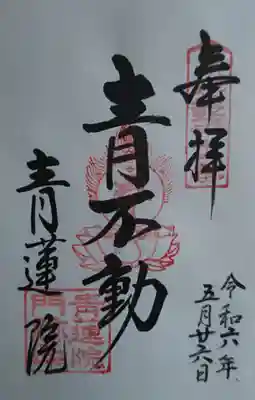 奉拝
令和六年
五月廿六日
青不動
青蓮院